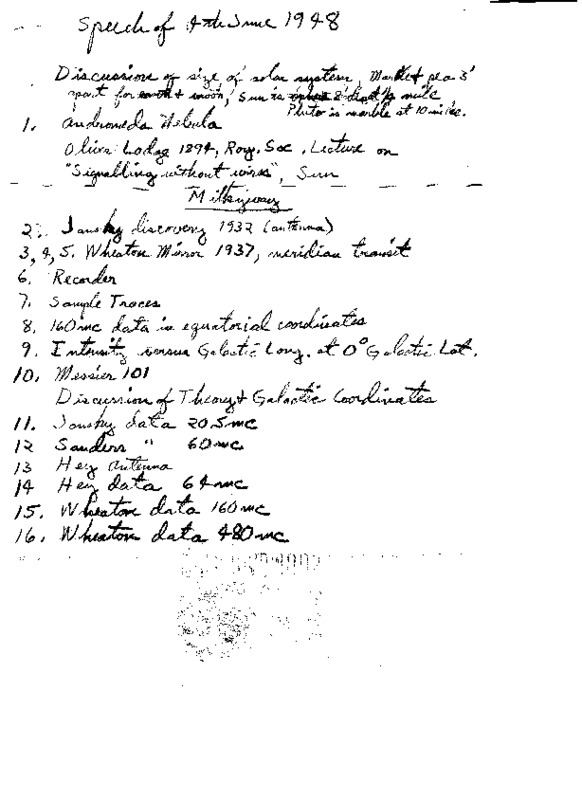 Speech of 4th June 1948
Discussion of size of solar system, Marble + pea 3'
apart for earth + moon, Sun is 8' dia at ½ mile
Pluto is marble at 10 miles.
1. Andromeda Nebula
Oliver Lodge 1894, Roy. Soc. Lecture on
"Signalling without wires", Sun
Milkyway
2. Jansky discovery 1932 (antenna)
3, 4, 5. Wheaton Mirror 1937, meridian transit
6. Recorder
7. Sample Traces
8. 160mc data in equatorial coordinates
9. Intensity versus Galactic Long. at 0° Galactic Lat.
10. Messier 101
Discussion of Theory + Galactic Coordinates
11. Jansky data 20.5mc
12 Sanders " 60mc
13 Hey antenna
14 Hey data 64mc
15. Wheaton data 160mc
16. Wheaton data 480mc